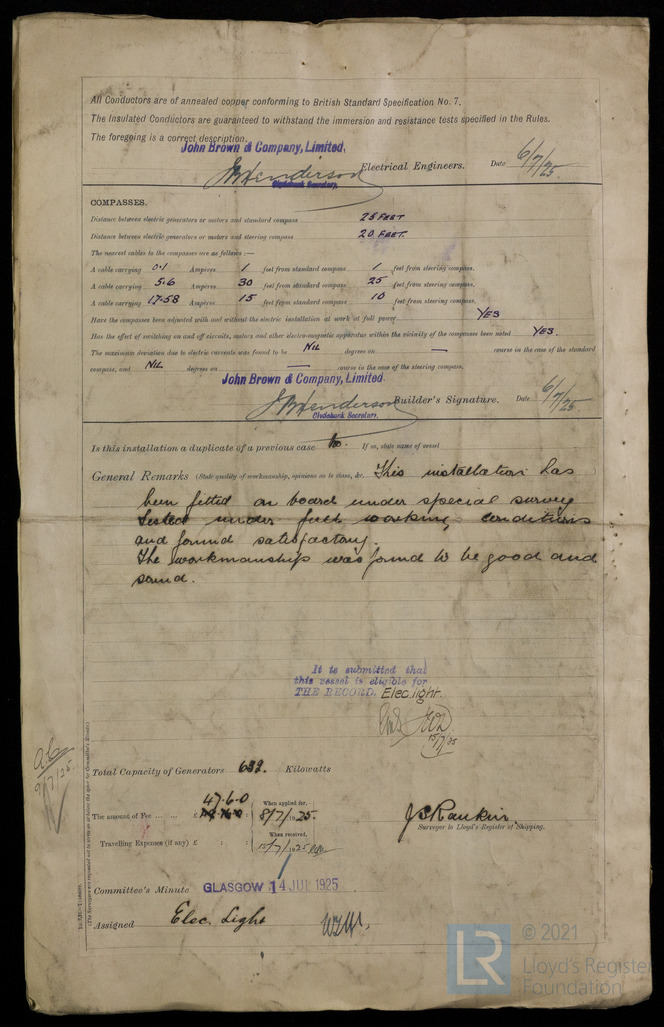 All Conductors are of annealed copper conforming to British Standard Specification No. 7.
The Insulated Conductors are guaranteed to withstand the immersion and resistance tests specified in the Rules.
The foregoing is a correct description.
John Brown & Company, Limited,
JBHenderson Electrical Engineers. Date 6/7/25
Clydebank Secretary.
COMPASSES.
Distance between electric generators or motors and standard compass 25 FEET
Distance between electric generators or motors and steering compass 20 FEET.
The nearest cables to the compasses are as follows:—
A cable carrying 0.1 Ampères 1 feet from standard compass 1 feet from steering compass.
A cable carrying 5.6 Ampères 30 feet from standard compass 25 feet from steering compass.
A cable carrying 17.58 Ampères 15 feet from standard compass 10 feet from steering compass.
Have the compasses been adjusted with and without the electric installation at work at full power YES
Has the effect of switching on and off circuits, motors and other electro-magnetic apparatus within the vicinity of the compasses been noted YES.
The maximum deviation due to electric currents was found to be NIL degrees on — course in the case of the standard
compass, and NIL degrees on — course in the case of the steering compass.
John Brown & Company, Limited
JBHenderson Builder's Signature. Date 6/7/25
Clydebank Secretary.
Is this installation a duplicate of a previous case No. If so, state name of vessel
General Remarks (State quality of workmanship, opinions as to class, &c. This installation has
been fitted on board under special survey
tested under full working conditions
and found satisfactory.
The workmanship was found to be good and
sound.
It is submitted that
this vessel is eligible for
THE RECORD. Elec. light.
15/7/25
9/7/25
Total Capacity of Generators 632. Kilowatts
The amount of Fee ... ... £ 47.6.0 : When applied for, 8/7/1925.
Travelling Expenses (if any) £ : : When received, 15/7/1925
J S Rankin.
Surveyor to Lloyd's Register of Shipping.
Committee's Minute GLASGOW 14 JUL 1925
Assigned Elec. Light
© 2021
LR Lloyd's Register
Foundation